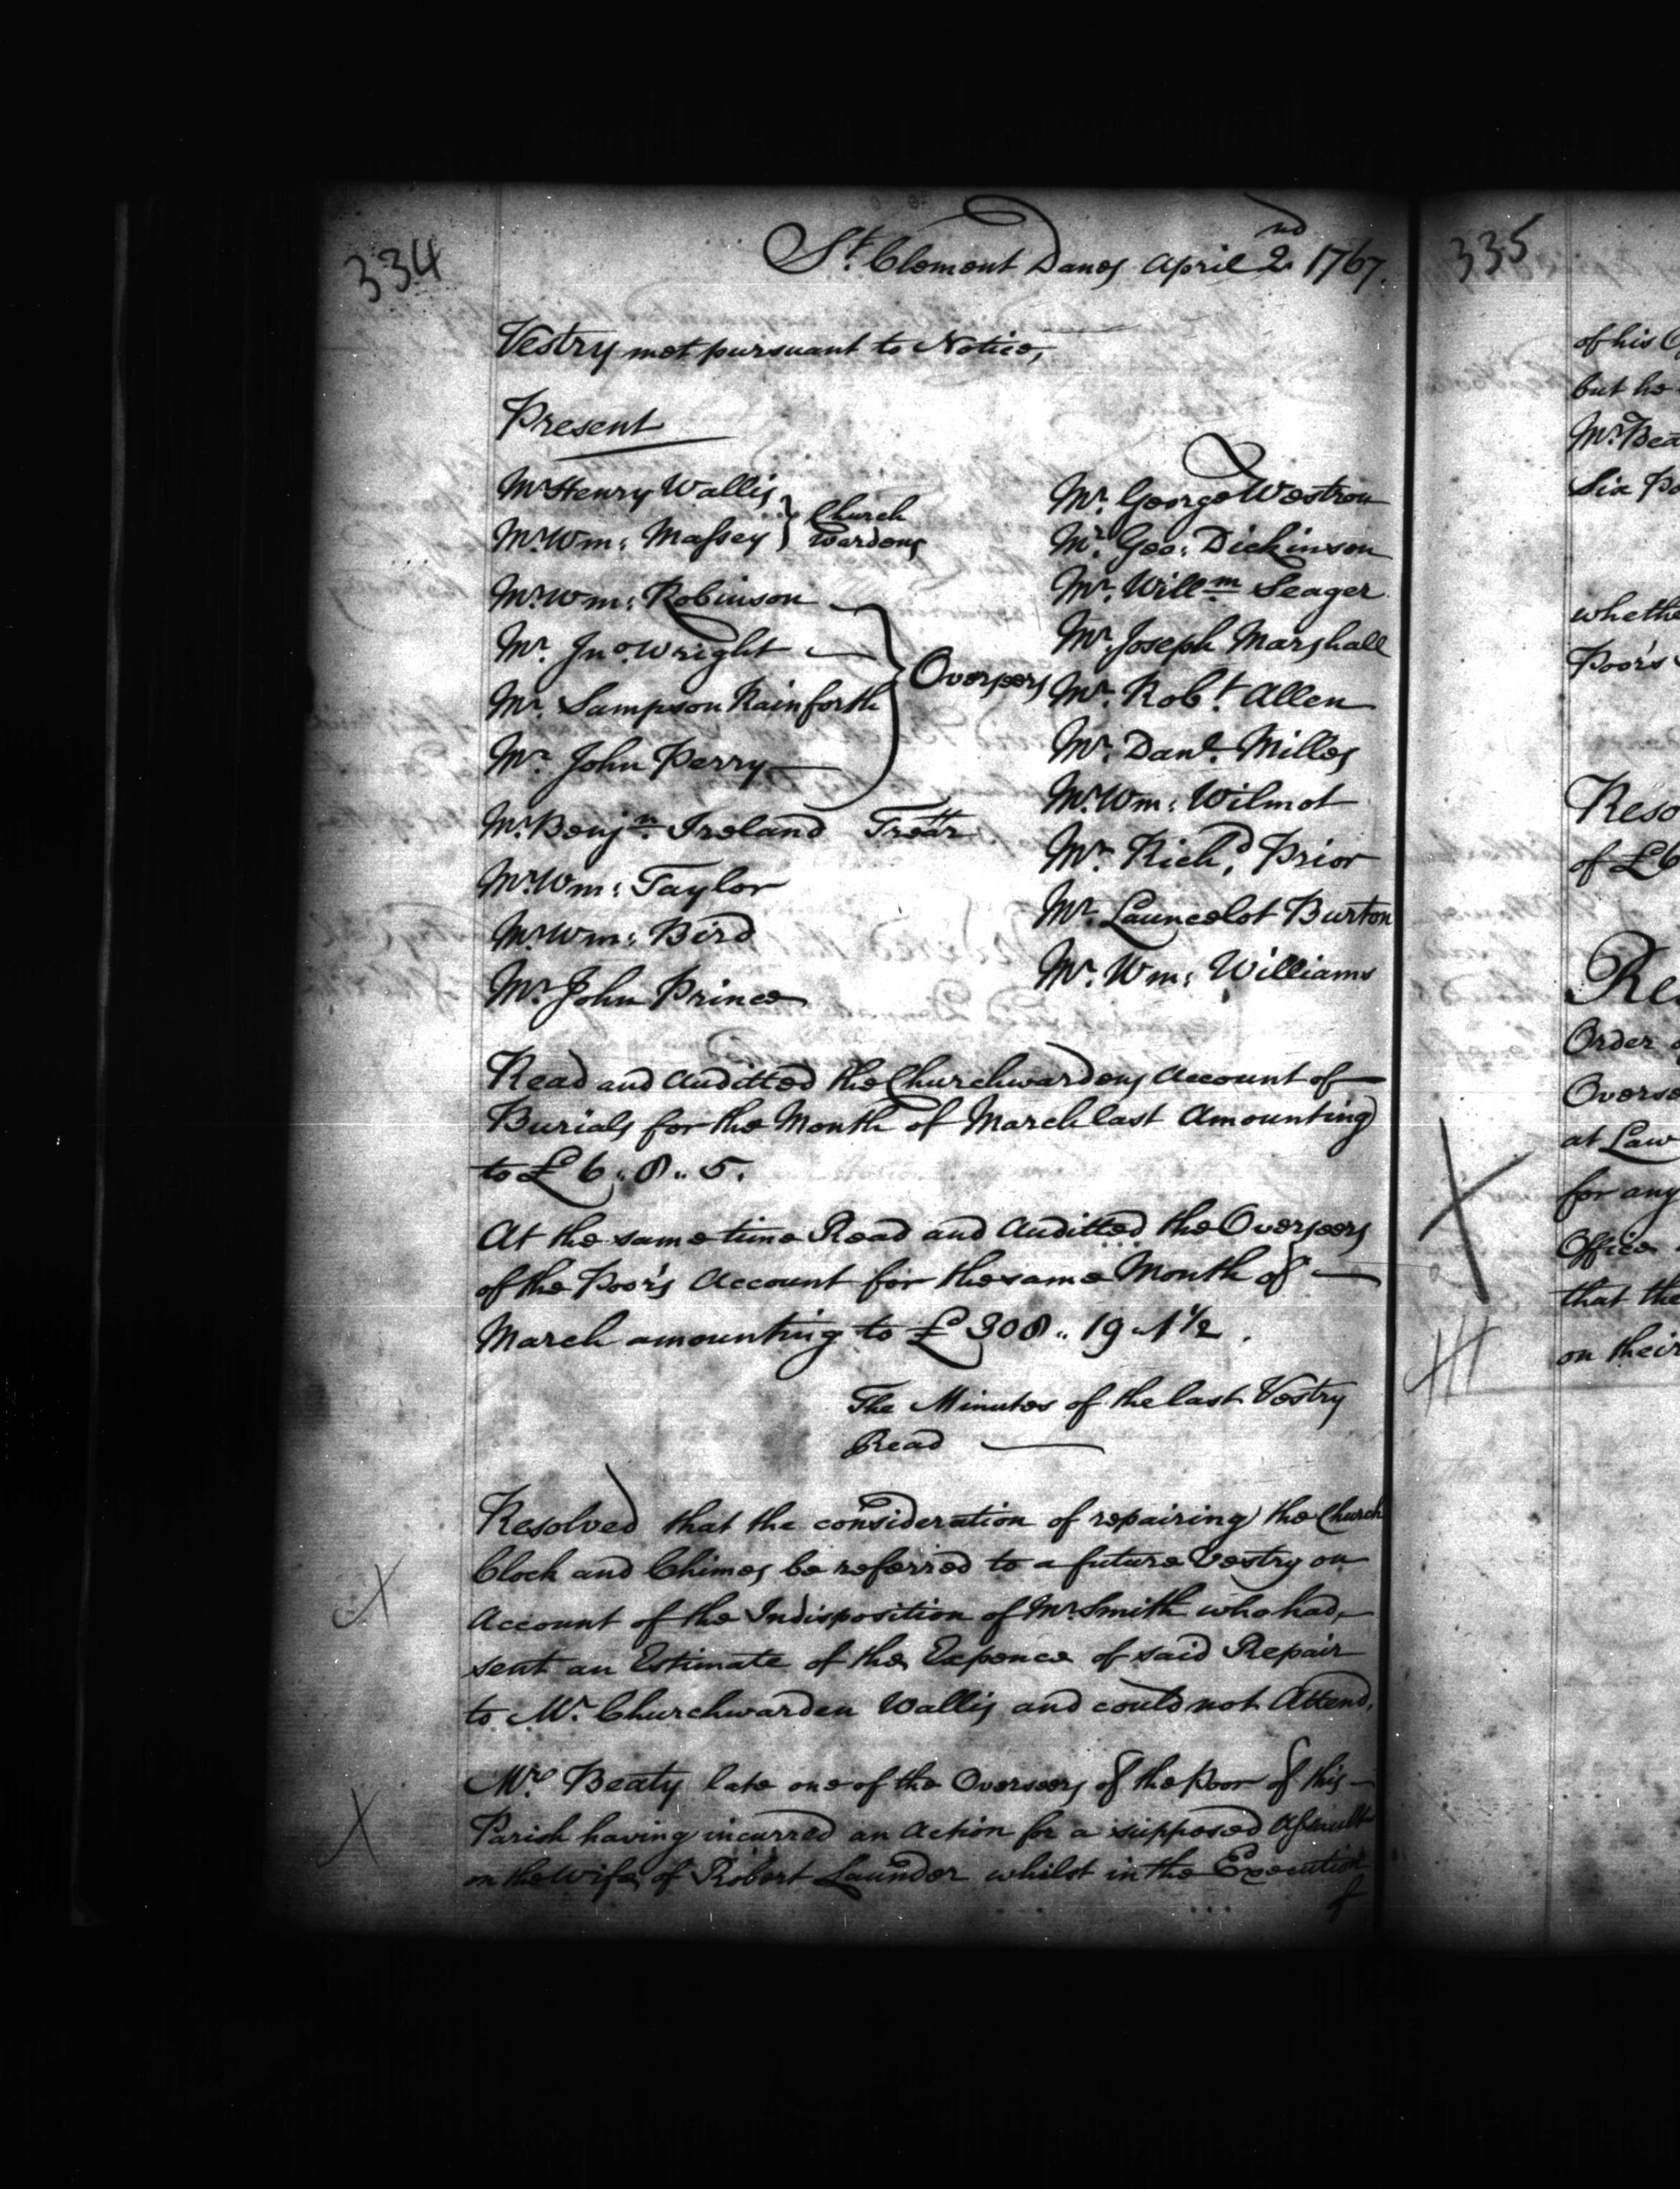 334
St. Clement Danes April 2nd 1767.
Vestry met pursuant to Notice,
Present
Mr Henry Wallis
Mr. Wm: Massey } Church wardens
Mr. Wm: Robinson
Mr. Jno. Wright
Mr. Sampson Rainforth
Mr. John Perry
} Overseers
Mr. Benjn. Ireland Trear
Mr. Wm: Taylor
Mr. Wm: Bird
Mr. John Prince
Mr. George Westron
Mr. Geo: Dickinson
Mr. Willm Seager
Mr. Joseph Marshall
Mr. Robt. Allen
Mr. Danl. Milles
Mr. Wm: Wilmot
Mr. Richd. Prior
Mr. Launcelot Burton
Mr. Wm: Williams
Read and Auditted the Churchwardens Account of
Burials for the Month of March last Amounting
to £6..8..5.
At the same time Read and Auditted the Overseers
of the Poor's Account for the same Month of
March amounting to £308..19..1½.
The Minutes of the last Vestry
Read
Resolved that the consideration of repairing the Church
Clock and Chimes be referred to a future Vestry on
Account of the Indisposition of Mr. Smith who had
sent an Estimate of the Expence of said Repair
to Mr. Churchwarden Wallis and could not Attend.
Mr. Beaty late one of the Overseers of the Poor of this
Parish having incurred an Action for a supposed Assault
on the Wife of Robert Launder whilst in the Execution
of
335
of his
but he
Mr. Bea
Six Po
whethe
Poor's
Reso
of £6
Re
Order
Overse
at Law
for any
Office
that the
on their